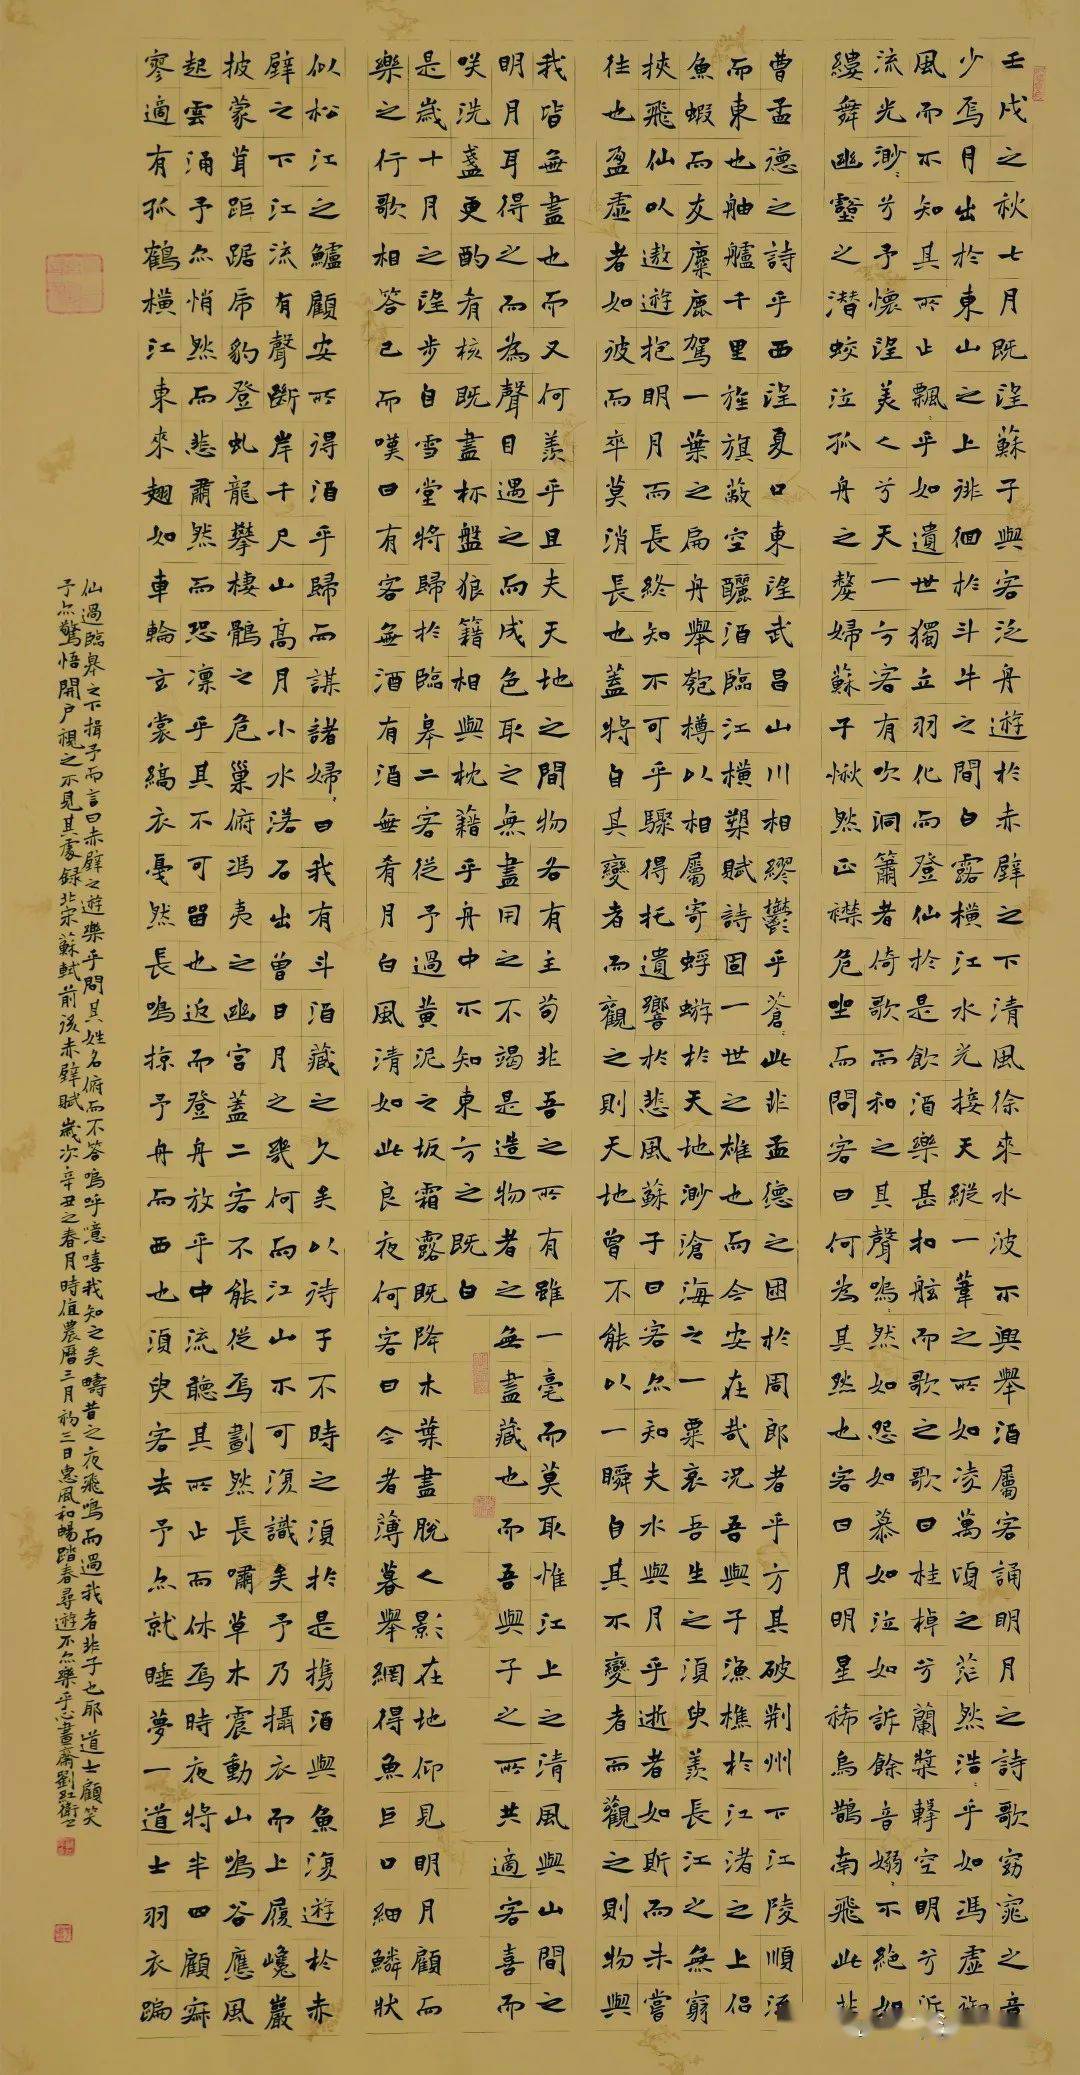 壬戌之秋七月既望蘇子與客泛舟遊於赤壁之下清風徐來水波不興舉酒屬客誦明月之詩歌窈窕之章
少焉月出於東山之上徘徊於斗牛之間白露橫江水光接天縱一葦之所如凌萬頃之茫然浩〻乎如馮虛御
風而不知其所止飄〻乎如遺世獨立羽化而登仙於是飲酒樂甚扣舷而歌之歌曰桂棹兮蘭槳擊空明兮泝
流光渺〻兮予懷望美人兮天一方客有吹洞簫者倚歌而和之其聲嗚〻然如怨如慕如泣如訴餘音嫋〻不絕如
縷舞幽壑之潛蛟泣孤舟之嫠婦蘇子愀然正襟危坐而問客曰何為其然也客曰月明星稀烏鵲南飛此非
曹孟德之詩乎西望夏口東望武昌山川相繆鬱乎蒼〻此非孟德之困於周郎者乎方其破荊州下江陵順流
而東也舳艫千里旌旗蔽空釃酒臨江橫槊賦詩固一世之雄也而今安在哉況吾與子漁樵於江渚之上侶
魚蝦而友麋鹿駕一葉之扁舟舉匏樽以相屬寄蜉蝣於天地渺滄海之一粟哀吾生之須臾羨長江之無窮
挾飛仙以遨遊抱明月而長終知不可乎驟得托遺響於悲風蘇子曰客亦知夫水與月乎逝者如斯而未嘗
往也盈虛者如彼而卒莫消長也蓋將自其變者而觀之則天地曾不能以一瞬自其不變者而觀之則物與
我皆無盡也而又何羨乎且夫天地之間物各有主苟非吾之所有雖一毫而莫取惟江上之清風與山間之
明月耳得之而為聲目遇之而成色取之無盡用之不竭是造物者之無盡藏也而吾與子之所共適客喜而
笑洗盞更酌肴核既盡杯盤狼籍相與枕籍乎舟中不知東方之既白
是歲十月之望步自雪堂將歸於臨皋二客從予過黃泥之坂霜露既降木葉盡脫人影在地仰見明月顧而
樂之行歌相答已而嘆曰有客無酒有酒無肴月白風清如此良夜何客曰今者薄暮舉網得魚巨口細鱗狀
似松江之鱸顧安所得酒乎歸而謀諸婦〻曰我有斗酒藏之久矣以待子不時之須於是攜酒與魚復遊於赤
壁之下江流有聲斷岸千尺山高月小水落石出曾日月之幾何而江山不可復識矣予乃攝衣而上履巉巖
披蒙茸距踞虎豹登虬龍攀棲鶻之危巢俯馮夷之幽宮蓋二客不能從焉劃然長嘯草木震動山鳴谷應風
起雲涌予亦悄然而悲肅然而恐凜乎其不可留也返而登舟放乎中流聽其所止而休焉時夜將半四顧寂
寥適有孤鶴橫江東來翅如車輪玄裳縞衣戛然長鳴掠予舟而西也須臾客去予亦就睡夢一道士羽衣蹁
仙過臨皋之下揖予而言曰赤壁之遊樂乎問其姓名俯而不答嗚呼噫嘻我知之矣疇昔之夜飛鳴而過我者非子也耶道士顧笑
予亦驚悟開戶視之不見其處錄北宋蘇軾前後赤壁賦歲次辛丑之春月時值農曆三月初三日惠風和暢踏春尋遊不亦樂乎心畫齋劉紅衛